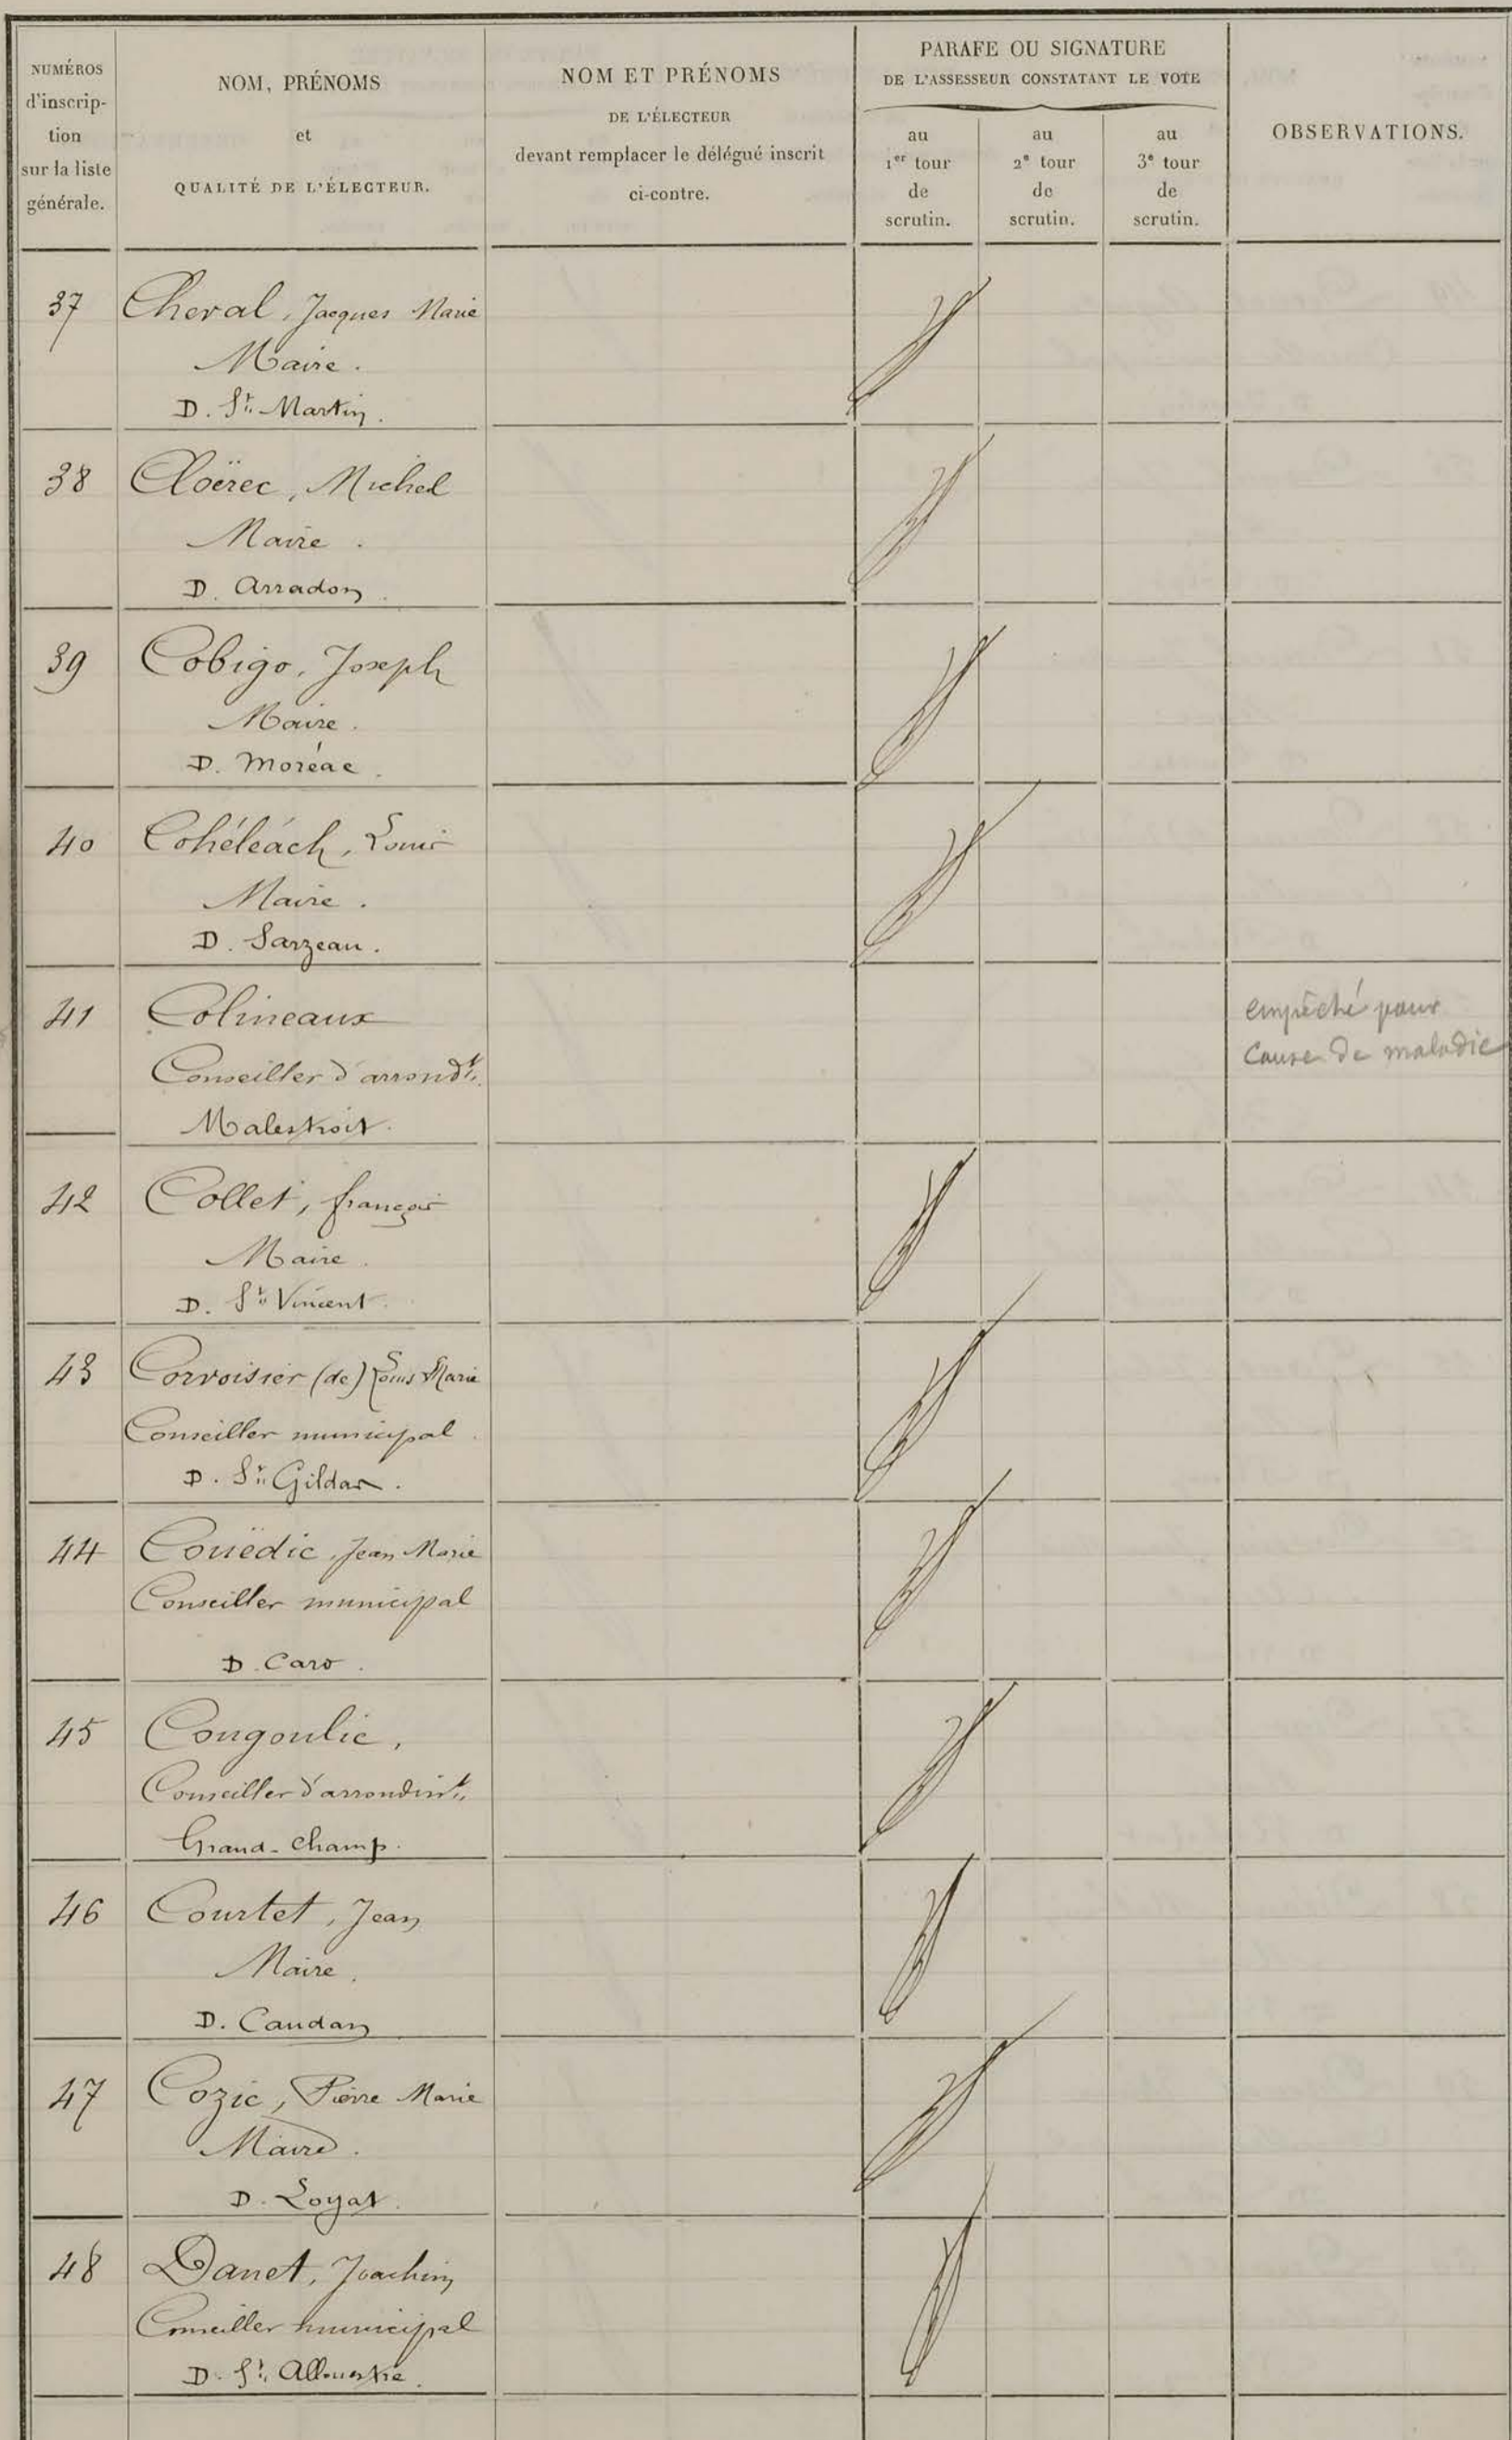 NUMÉROS
d'inscrip-
tion
sur la liste
générale.
NOM, PRÉNOMS
et
QUALITÉ DE L'ÉLECTEUR.
NOM ET PRÉNOMS
DE L'ÉLECTEUR
devant remplacer le délégué inscrit
ci-contre.
PARAFE OU SIGNATURE
DE L'ASSESSEUR CONSTATANT LE VOTE
au
1er tour
de
scrutin.
au
2e tour
de
scrutin.
au
3e tour
de
scrutin.
OBSERVATIONS.
37 Cheval, Jacques Marie
Maire.
D. St. Martin.
38 Cloërec, Michel
Maire.
D. Arradon.
39 Cobigo, Joseph
Maire.
D. Moréac.
40 Cohéléach, Louis
Maire.
D. Sarzeau.
41 Colineaux
Conseiller d'arrondt.
Malestroit.
empêché pour
cause de maladie
42 Collet, françois
Maire.
D. St. Vincent.
43 Corvoisier (de) Louis Marie
Conseiller municipal.
D. St. Gildas.
44 Couëdic, Jean Marie
Conseiller municipal
D. Caro.
45 Cougoulic,
Conseiller d'arrondimt.
Grand-Champ.
46 Courtet, Jean
Maire.
D. Caudan
47 Cozic, Pierre Marie
Maire.
D. Loyat.
48 Danet, Joachim
Conseiller municipal
D. St. Allouestre.